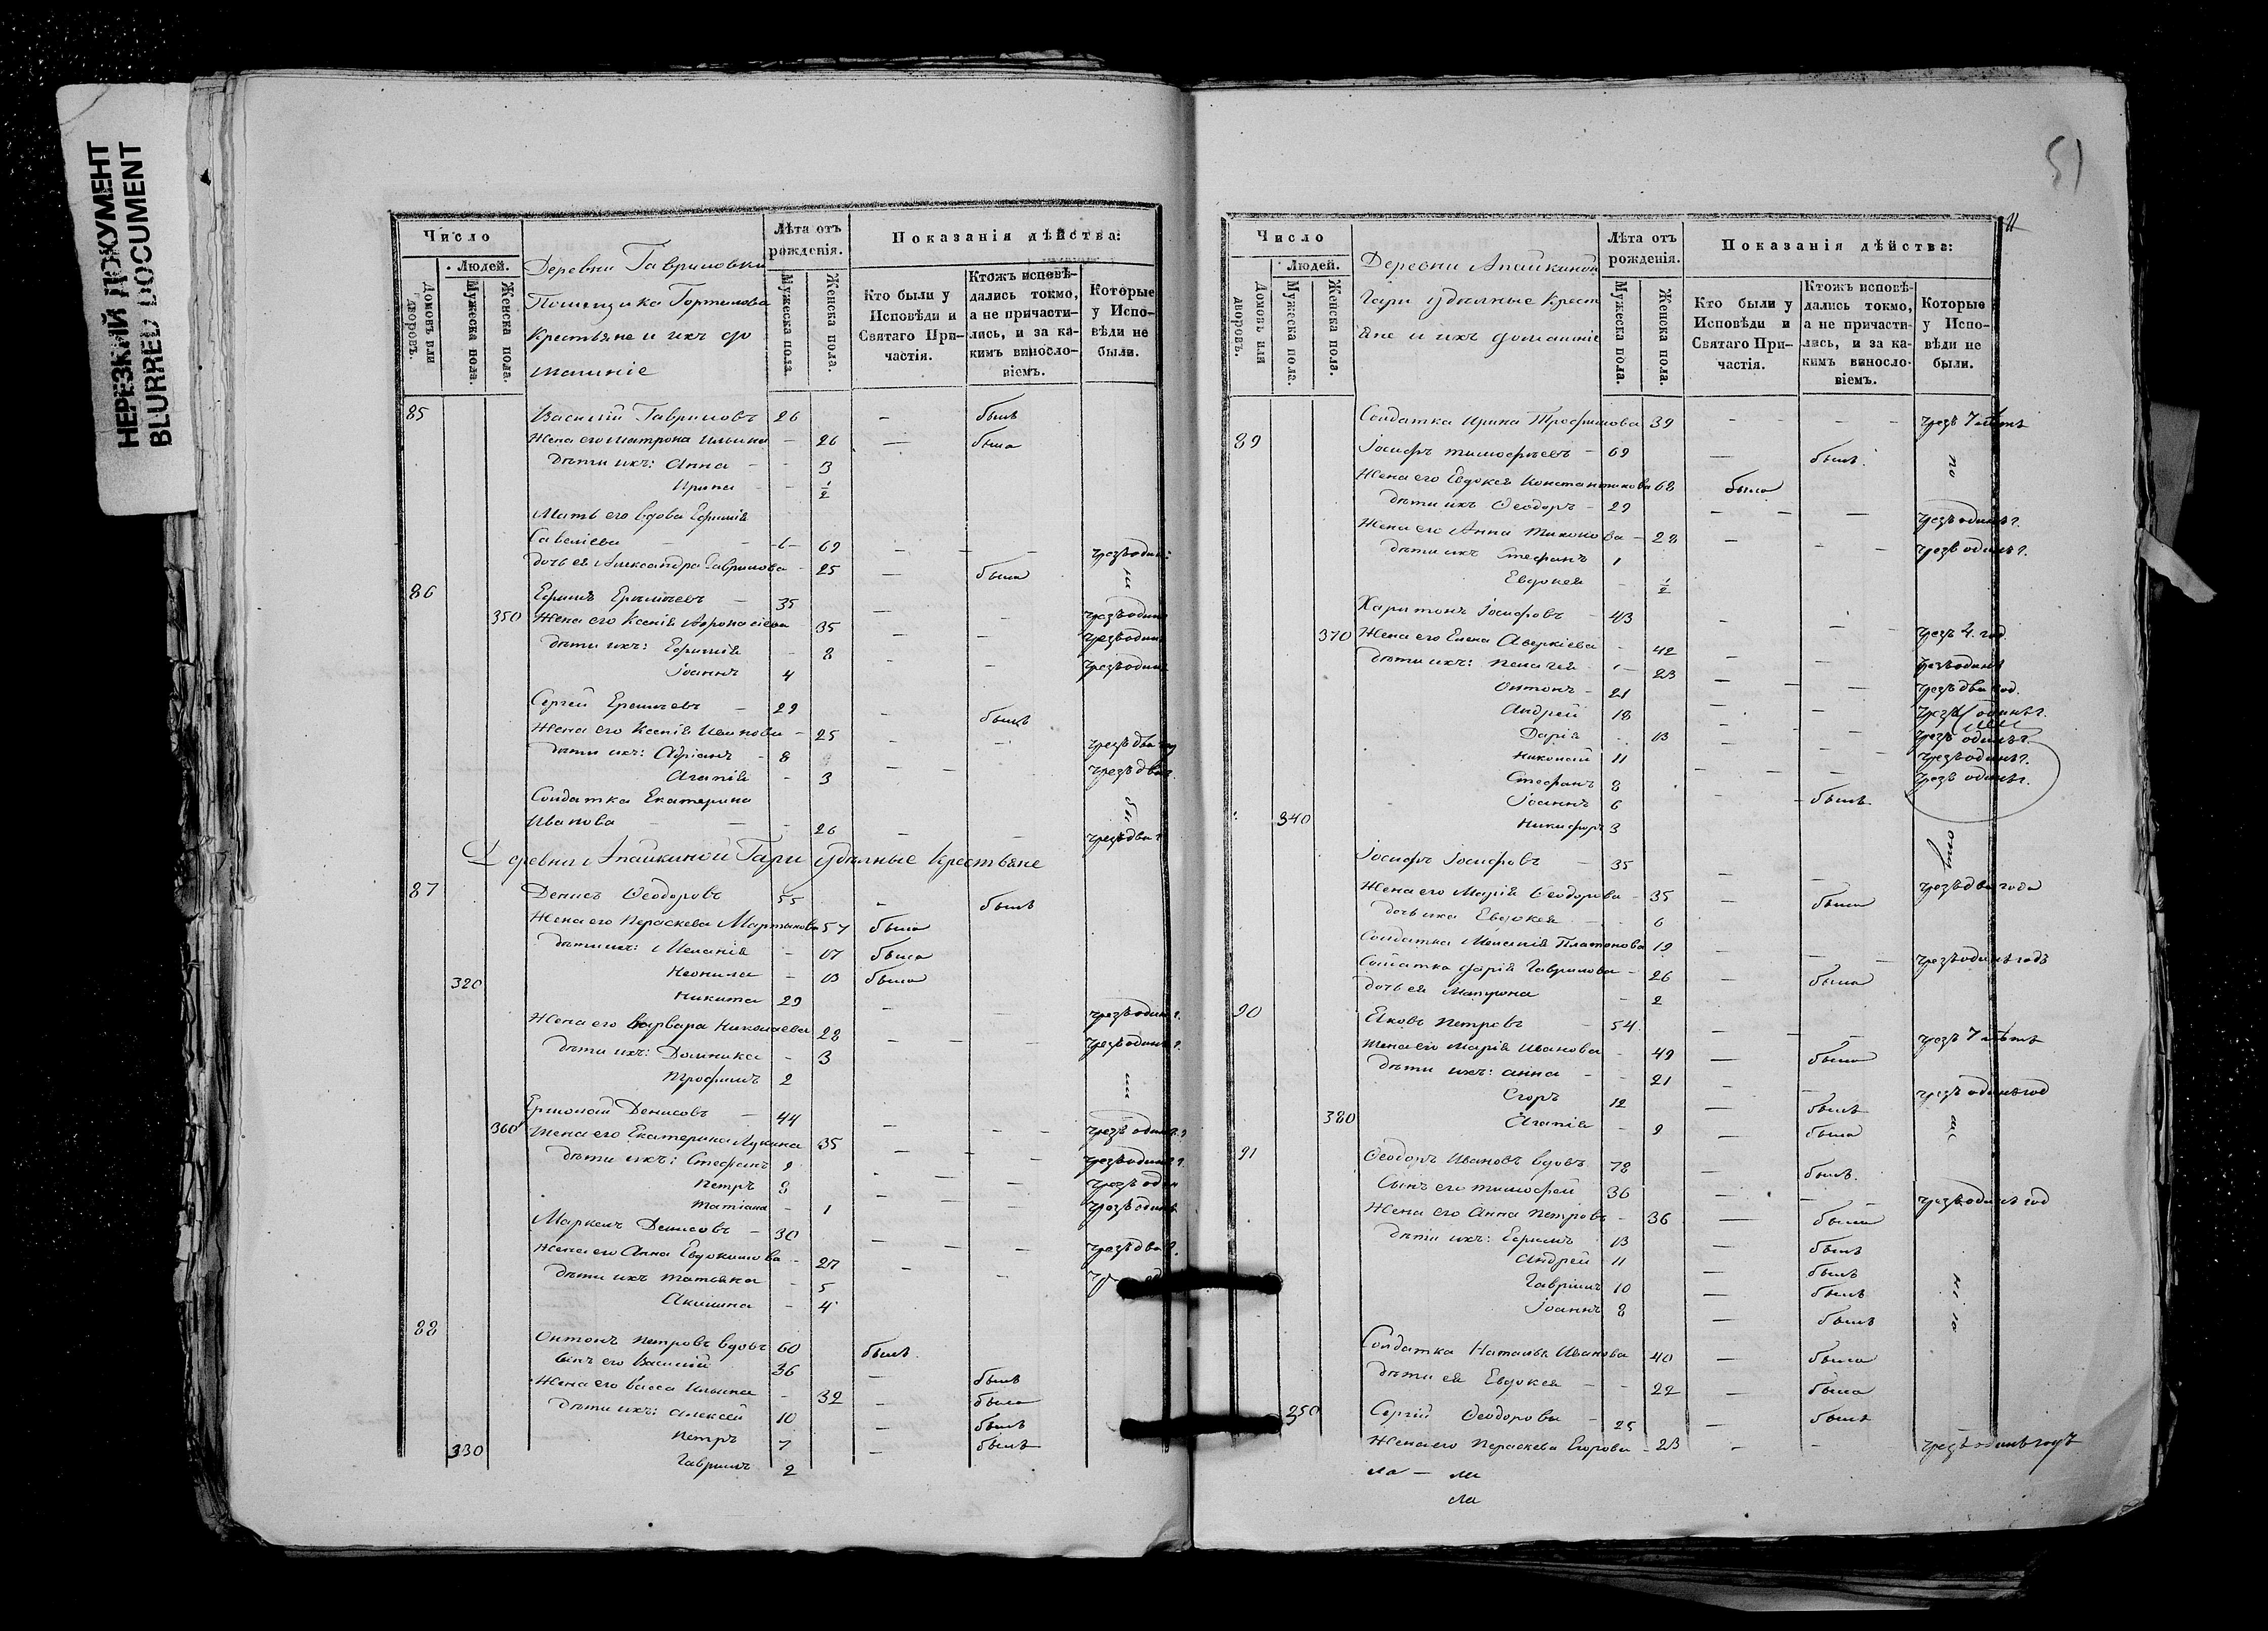 НЕРЕЗКИЙ ДОКУМЕНТ
BLURRED DOCUMENT
Число
Людей.
Домовъ или дворовъ.
Мужеска пола.
Женска пола.
Деревни Гавриловки
Помещика
Крестьяне и ихъ до
машніе
Лѣта отъ рожденія.
Мужеска пола.
Женска пола.
Показанія дѣйства:
Кто были у Исповѣди и Святаго Причастія.
Ктожъ исповѣдались токмо, а не причастились, и за какимъ винословіемъ.
Которые у Исповѣди не были.
85 Василій Гавриловъ 26 — былъ
Жена его Матрона Ильина — 26 — была
Дѣти ихъ: Анна — — 3
Ирина — — 1/2
Мать его вдова Ефимія
Савеліева — — 69 — — — чрезъ один
дочь ея Александра Гаврилова — 25 — была
86 Ефимъ — 35 — — чрезъ один
350 Жена его Ксенія Афонасіева 35 — — чрезъ один
Дѣти ихъ: Ефимія — 8 — — чрезъ один
Іоаннъ 4
Сергей — 29 — былъ
Жена его Ксенія Иванова — 25 — — чрезъ два год
Дѣти ихъ: Адріанъ — 8 — — чрезъ два г.
Агапія — 3
Солдатка Екатерина
Иванова — — — 26 — — чрезъ два г
Деревни Апайкиной Гари удѣлные крестьяне
87 Денисъ Ѳеодоровъ 55 — былъ
Жена его Параскева Мартынова 57 была
Дѣти ихъ: Меланія — 17 была
Неонила — 13 была
320 Никита 29 — — чрезъ один г.
Жена его Варвара Николаева 28 — — — чрезъ один г.
Дѣти ихъ: Домника — 3
Трофимъ 2
Ермолай Денисовъ — 44 — — — чрезъ один г.
360 Жена его Екатерина Лукина 35 — — — чрезъ один г.
Дѣти ихъ: Стефанъ 9 — — — чрезъ один
Петръ 8 — — — чрезъ один
Татіана — 1
Маркелъ Денисовъ — 30 — — — чрезъ два г.
Жена его Анна Евдокимова — 27 — —
Дѣти ихъ Татьяна — 5
Акилина — 4
88 Антонъ Петровъ вдовъ 60 былъ.
Сынъ его Василій 36 — былъ
Жена его Васса Ильина — 32 — была
Дѣти ихъ: Алексей 10 — былъ
Петръ 7 — былъ
330 Гавриилъ 2
51
Число
Людей.
Домовъ или дворовъ.
Мужеска пола.
Женска пола.
Деревни Апайкиной
Гари удѣлные Крест
яне и ихъ домашніе
Лѣта отъ рожденія.
Мужеска пола.
Женска пола.
Показанія дѣйства:
Кто были у Исповѣди и Святаго Причастія.
Ктожъ исповѣдались токмо, а не причастились, и за какимъ винословіемъ.
Которые у Исповѣди не были.
Солдатка Ирина Трофимова 39 — — — чрезъ 7 лѣтъ
89 Іосифъ Тимофѣевъ — 69 — былъ. по
Жена его Евдокея Константинова 68 была
дѣти ихъ Ѳеодоръ — 29 — — — чрезъ одинъ г.
Жена его Анна Тихонова — 28 — — — чрезъ одинъ г.
дѣти ихъ Стефанъ 1
Евдокея — 1/2
Харитонъ Іосифовъ — 43 — — чрезъ 4 год.
370 Жена его Елена Аверкіева — 42 — — чрезъ один
Дѣти ихъ: Пелагея — 23 — — чрезъ два год.
Антонъ — 21 — — чрезъ одинъ г.
Андрей 18 — — чрезъ одинъ г.
Дарія — 13 — — чрезъ одинъ г.
Николай 11 — — чрезъ одинъ г.
Стефанъ 8 — былъ
Іоаннъ 6
340 Никифоръ 3
Іосифъ Іосифовъ — 35 — — чрезъ два года
Жена его Марія Ѳеодорова — 35 — была
дочь ихъ Евдокея — — 6
Солдатка Меланія Платонова 19 — — чрезъ одинъ годъ
Солдатка Дарія Гаврилова — 26 — была
дочь ея Матрона — 2
90 Яковъ Петровъ — 54 — — чрезъ 7 лѣтъ
Жена его Марія Иванова — 49 — была
Дѣти ихъ: Анна — — 21 — — чрезъ одинъ год
Егоръ 12 — былъ
380 Агапія — 9 — была
91 Ѳеодоръ Ивановъ вдовъ 78 — былъ.
Сынъ его Тимофей 36 — — чрезъ одинъ год
Жена его Анна Петрова — 36 — была
Дѣти ихъ: Ефимъ 13 — былъ
Андрей 11 — былъ
Гавріилъ 10 — былъ
Іоаннъ 8 — былъ
Солдатка Наталья Иванова 40 — была
Дѣти ея Евдокея — — 22 — была
350 Сергій Ѳеодоровъ — 25 — былъ
Жена его Параскева Егорова — 23 — — чрезъ одинъ годъ